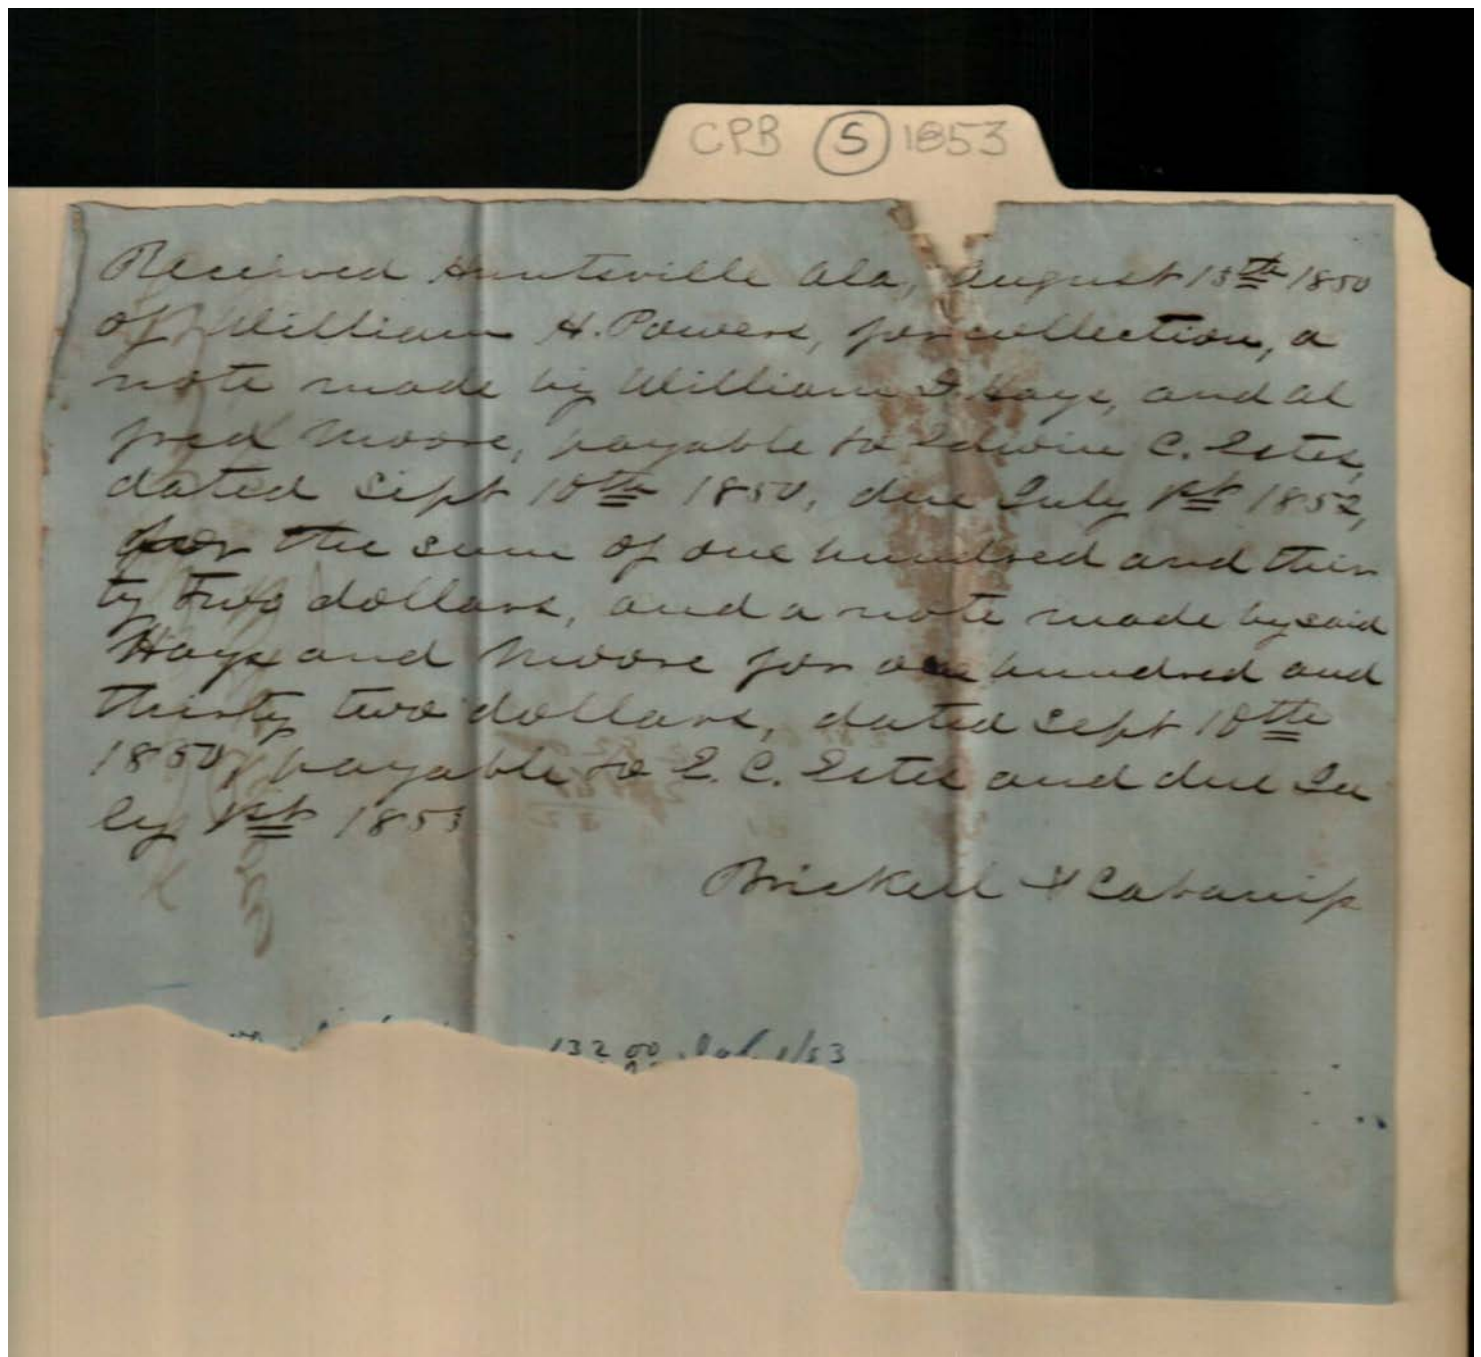 CPB S 1853
Received Huntsville Ala, August 13th 1850
of William H. Powers, for collection, a
note made by William I Hays, and Al
fred Moore, payable to Edwin C. Estes,
dated Sept 10th 1850, due July 1st 1852,
for the sum of one hundred and thir
ty two dollars, and a note made by said
Hays and Moore for one hundred and
thirty two dollars, dated Sept 10th
1850, payable to E. C. Estes and due Ju
ly 1st 1853
Brickell & Cabaniss
132 00 1/53